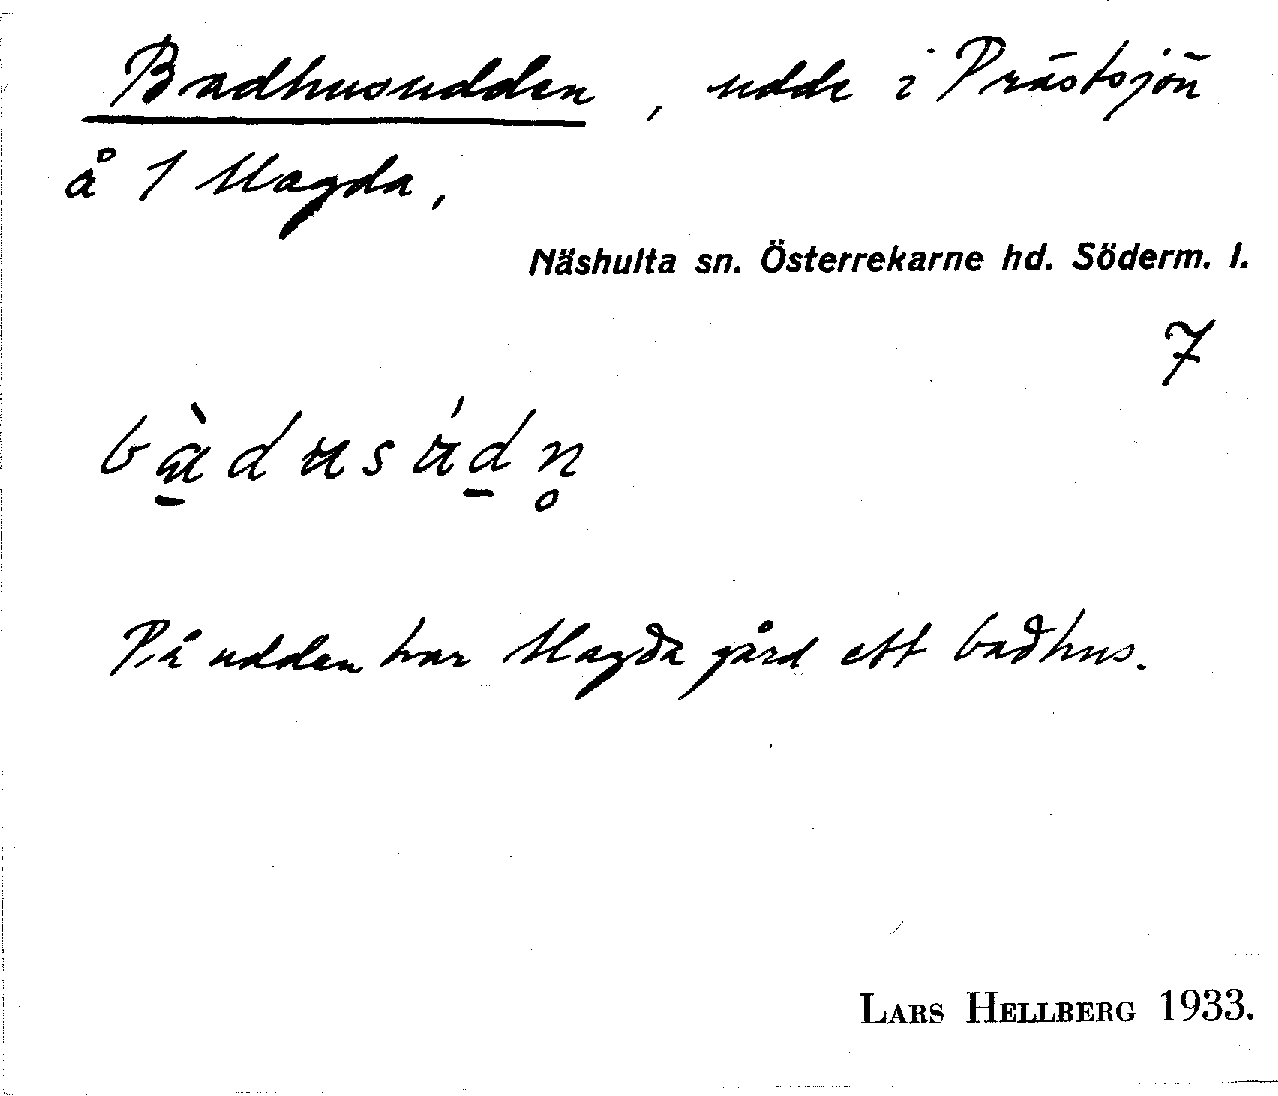 Badhusudden, udde i Prästsjön
å 1 Magda,
Näshulta sn. Österrekarne hd. Söderm. l.
7
bà̱dusúḏn̥
På udden har Magda gård ett badhus.
LARS HELLBERG 1933.